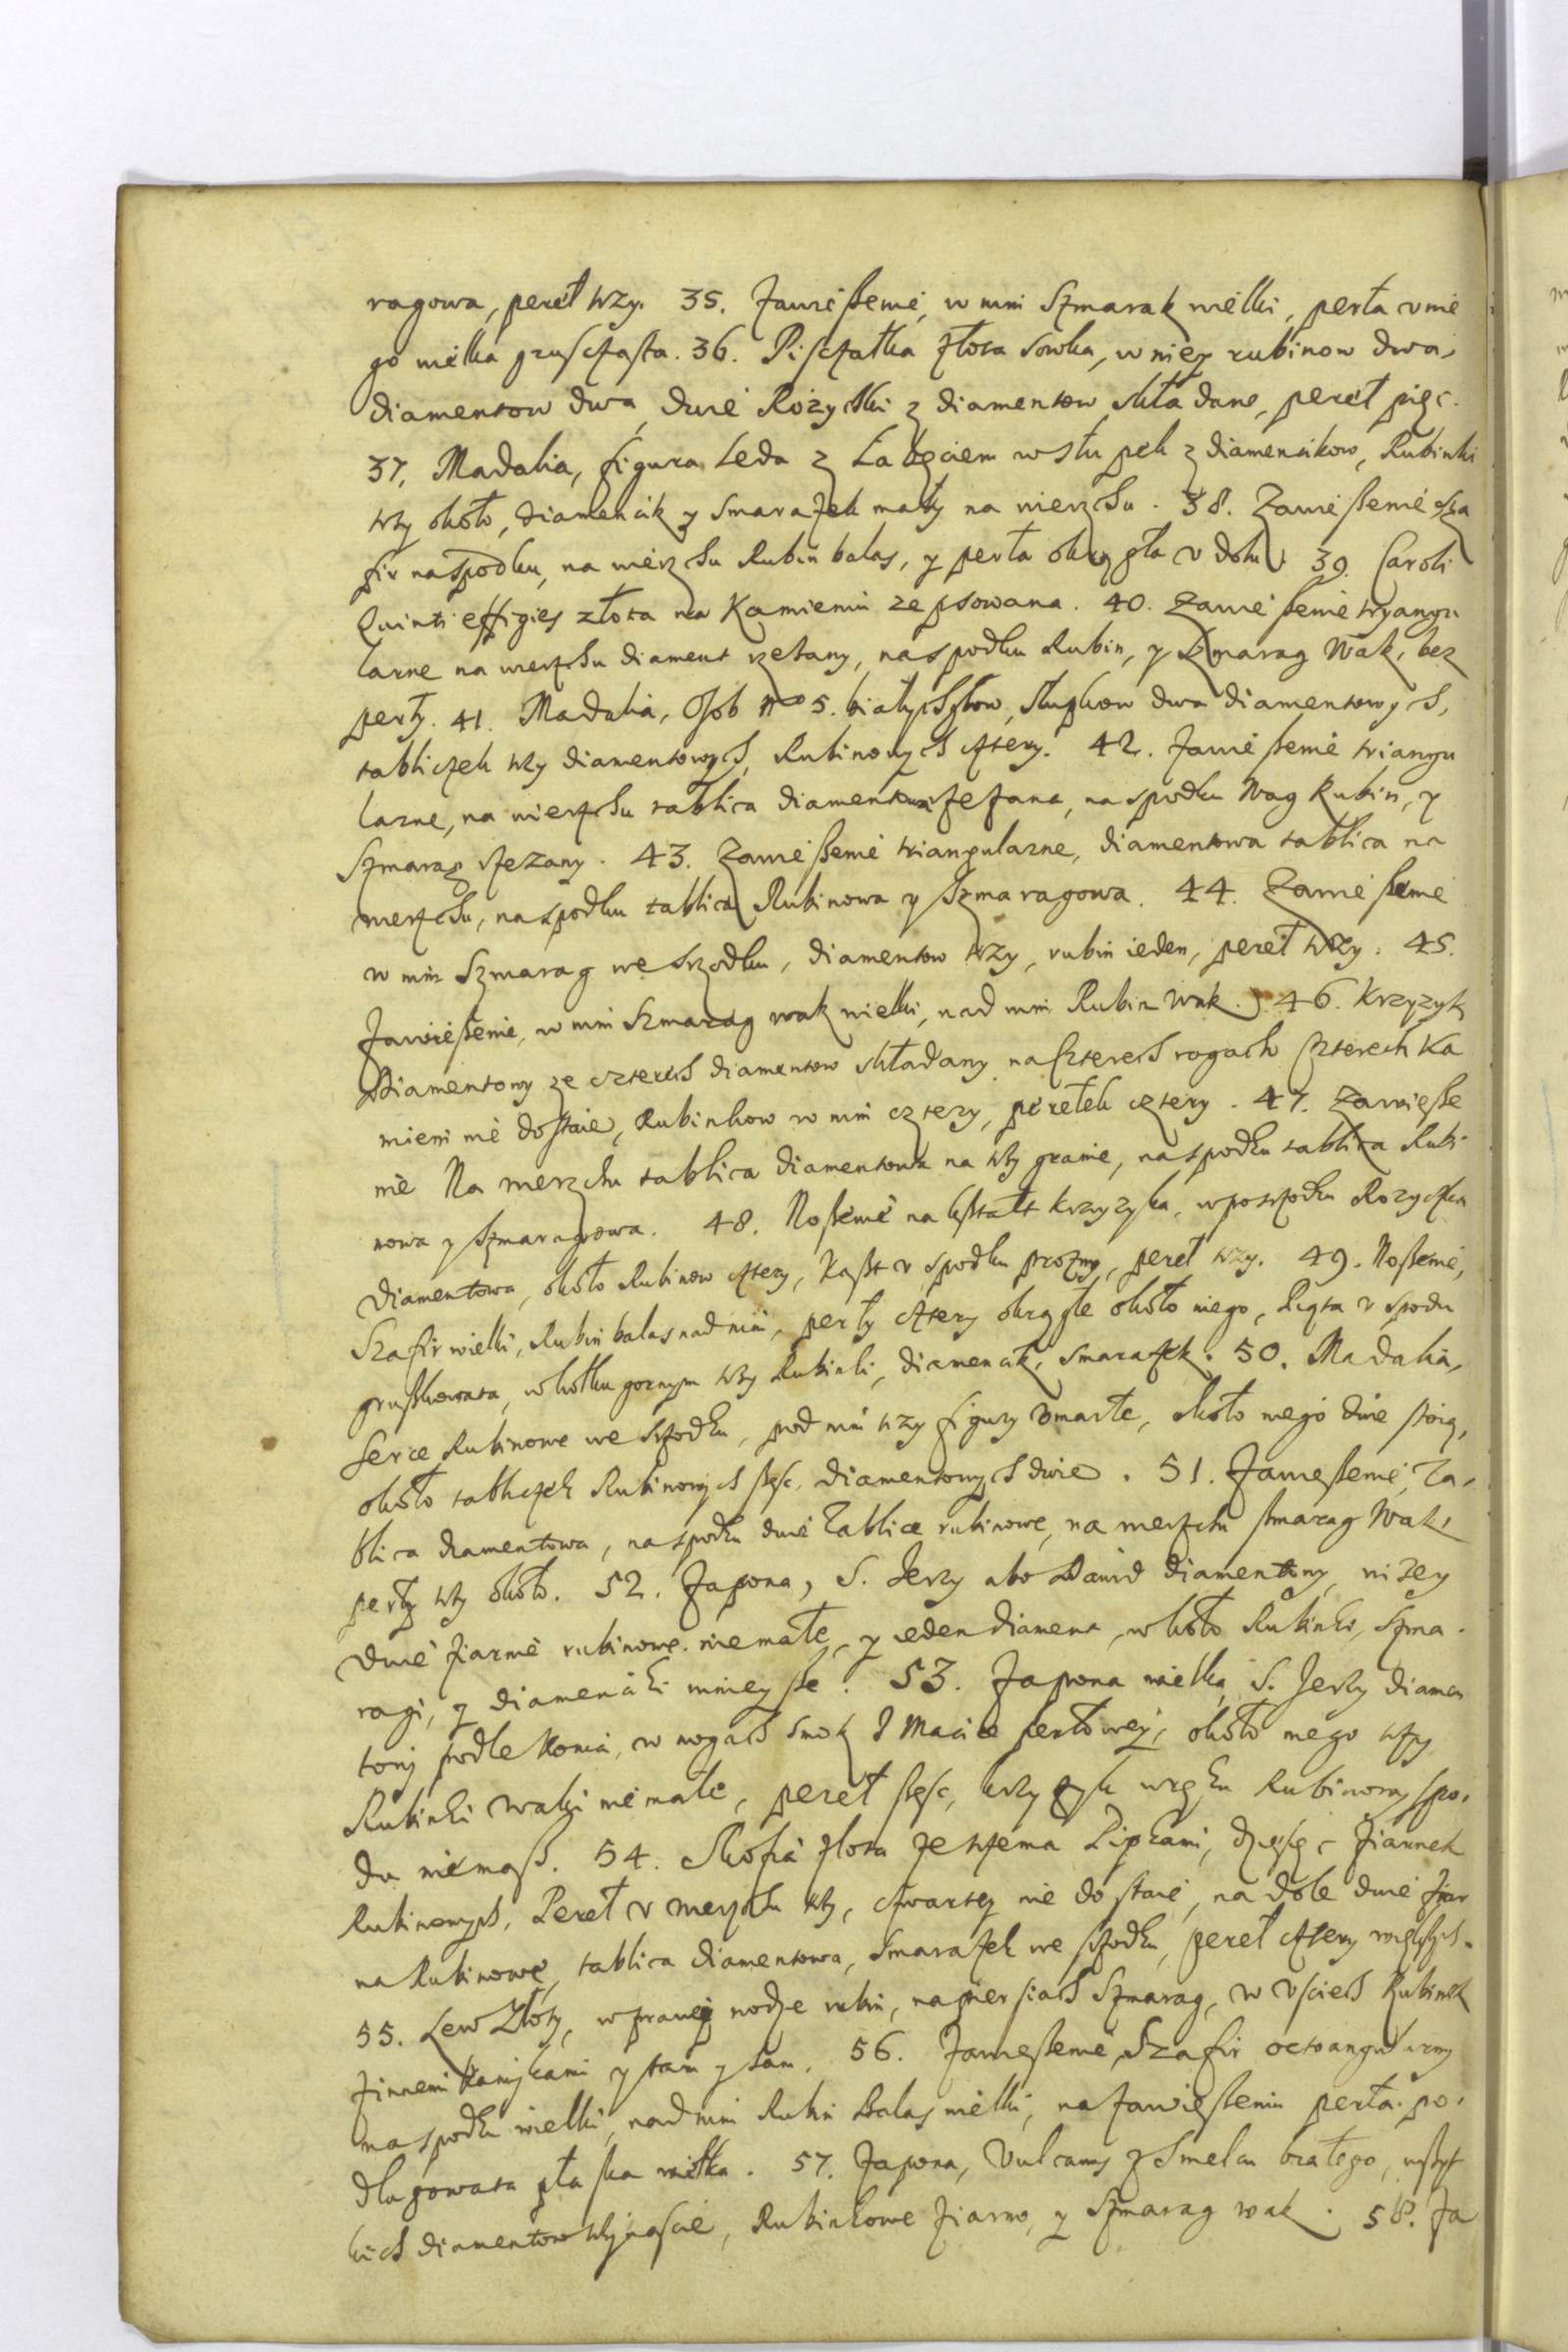 ragowa, pereł trzy. 35. Zawieszenie, w nim Szmarak wielki, perła v nie
go wielka gruszczasta. 36. Piszczałka złota sowka, w niey rubinow dwa,
diamentow dwa, dwie Różyczki z diamentow składane, pereł pięc.
37. Madalia, figura Leda z Łabęciem w słupek z diamencikow, Rubinki
trzy około, diamencik y smaraźek mały na wierzchu. 38. Zawieszenie sza
fir na spodku, na wierzchu Rubin balas, y perła okrągła v dołu. 39. Caroli
Quinti effigies złota na Kamieniu zepsowana. 40. Zawieszenie tryangu
larne na wierzchu diament rzezany, na spodku Rubin, y Szmarag Wak, bez
perły. 41. Madalia, Osob nro 5. białychgłow, słupkow dwa diamentowych,
tabliczek trzy diamentowych, Rubinowych cztery. 42. Zawieszenie triangu
larne, na wierzchu tablica diamentowa rzezana, na spodku Wag Rubin, y
Szmarag rzezany. 43. Zawieszenie triangularne, diamentowa tablica na
wierzchu, na spodku tablica Rubinowa y Szmaragowa. 44. Zawieszenie
w nim Szmarag we srzodku, diamentow trzy, rubin ieden, pereł trzy. 45.
Zawieszenie, w nim Szmarag wak wielki, nad nim Rubin Wak. 46. Krzyzyk
Diamentowy ze czterech diamentow składany na czterech rogach czterech Ka
mieni nie dostaie, Rubinkow w nim cztery, perełek cztery. 47. Zawiesze
nie Na wierzchu tablica diamentowa na trzy granie, na spodku tablica Rubi
nowa y Szmaragowa. 48. Noszenie na kształt krzyzyka, w posrzodku Rozyczka
Diamentowa, około Rubinow cztery, Kaszt v spodku prozny, pereł trzy. 49. Noszenie,
Szafir wielki, Rubin balas nad nim, perły cztery okrągłe około niego, Piąta v spodu
gruszkowata, w kołku gornym trzy Rubinki, diamencik, smarażek. 50. Madalia,
Serce Rubinowe we srzodku, pod nim trzy figury vmarłe, około niego dwie stoią,
około tabliczek Rubinowych szesc, diamentowych dwie. 51. Zawieszenie, Ta,
blica diamentowa, na spodku dwie Tablice rubinowe, na wierzchu smarag Wak,
perły trzy około. 52. Zapona, S. Jerzy abo Dawid diamentowy, nizey
Dwie ziarnie rubinowe niemałe, y ieden diament, w koło Rubinki, Szma.
ragi, y diamenciki mnieysze. 53. Zapona wielka S. Jerzy diamen
towy podle konia, w nogach smok z Macice perłowey, około niego trzy
Rubinki waki niemałe, pereł szesc, krzyzyk w ręku Rubinowy spo,
du niemasz. 54. Skofia złota ze trzema Piorkami, dziesięc Ziarnek
Rubinowych, Pereł v wierzchu trzy, czwartey nie dostaie, na dole dwie Ziar
na Rubinowe, tablica diamentowa, smarażek we srzodku, pereł cztery większych.
55. Lew Złoty, w prawey nodze rubin, na piersiach Szmarag, w vściech Rubinek
z innemi kamykami y tam y sam. 56. Zawieszenie, Szafir octoangularny
na spodku wielki, nad nim Rubin Balas wielki, na zawieszeniu perła po,
długowata płaska wielka. 57. Zapona, Vulcanus z Smelcu białego, wszyt
kich diamentow trzynascie, Rubinkowe ziarno, y Szmarag wak. 58. Za